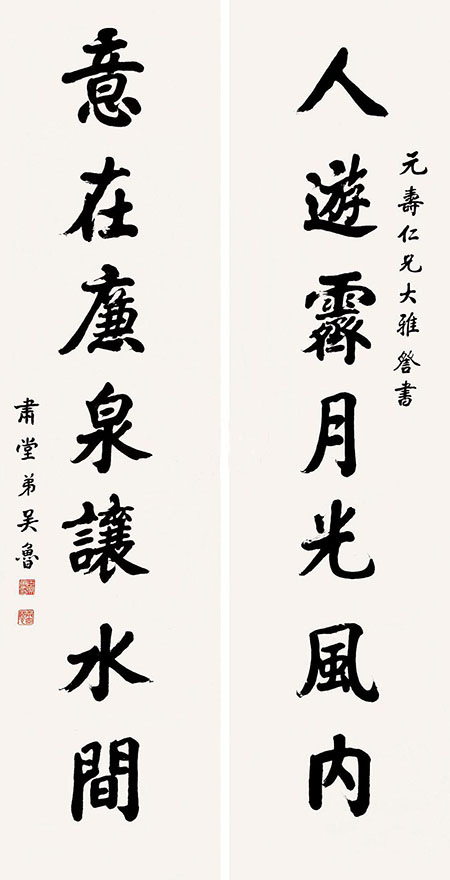 元壽仁兄大雅詧書
人遊霽月光風内
意在廉泉讓水間
肅堂弟吴魯